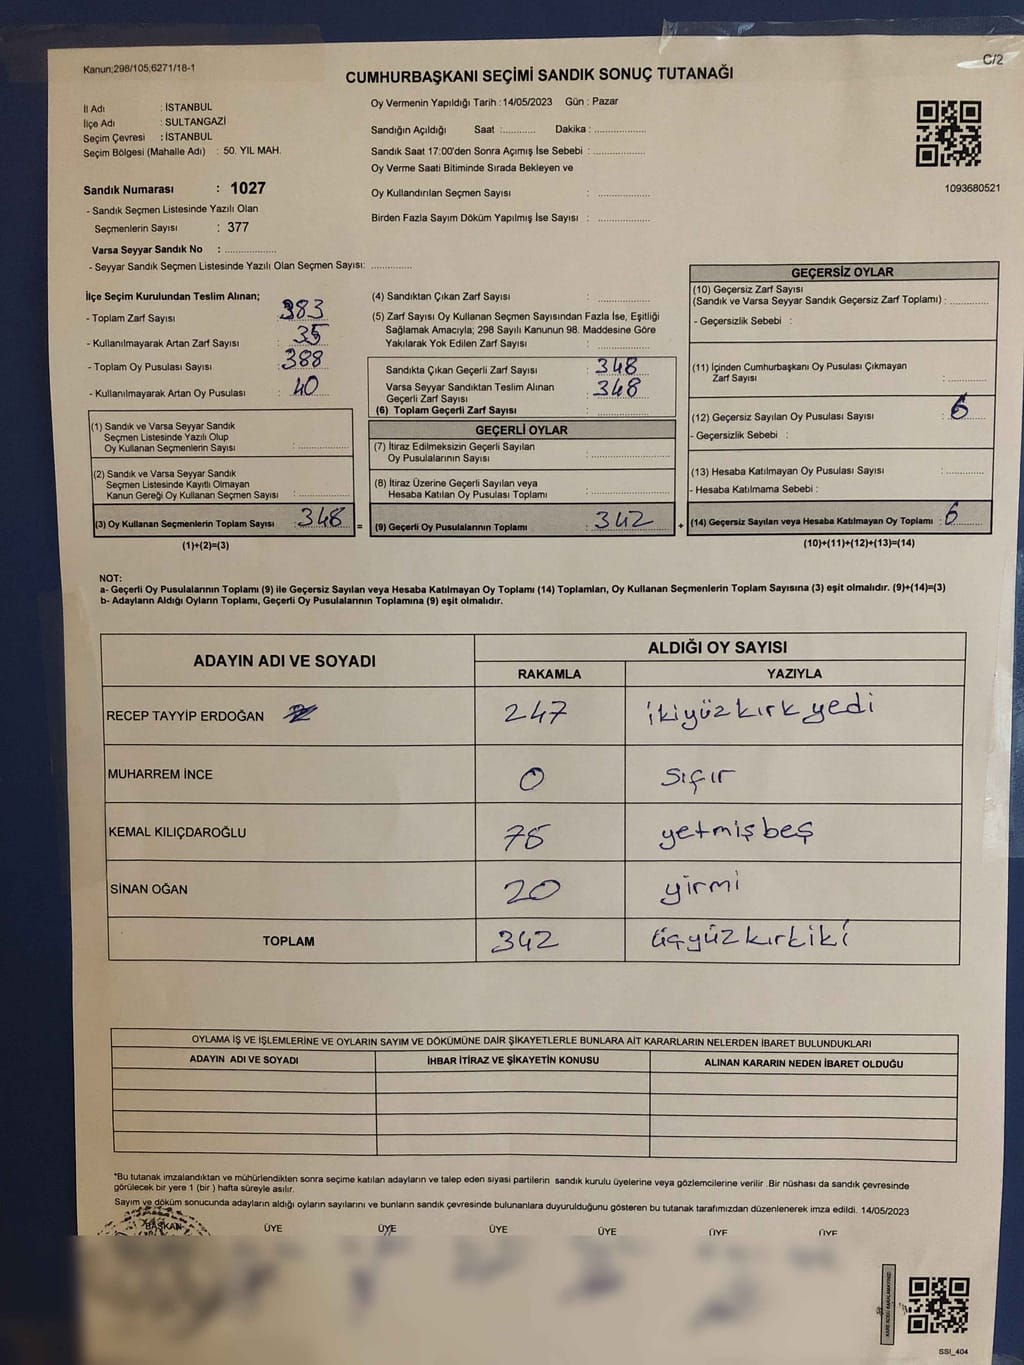 Kanun;298/105;6271/18-1
C/2
CUMHURBAŞKANI SEÇİMİ SANDIK SONUÇ TUTANAĞI
İl Adı : İSTANBUL
İlçe Adı : SULTANGAZİ
Seçim Çevresi : İSTANBUL
Seçim Bölgesi (Mahalle Adı) : 50. YIL MAH.
Sandık Numarası : 1027
- Sandık Seçmen Listesinde Yazılı Olan
Seçmenlerin Sayısı : 377
Varsa Seyyar Sandık No : ................
- Seyyar Sandık Seçmen Listesinde Yazılı Olan Seçmen Sayısı: .............
Oy Vermenin Yapıldığı Tarih : 14/05/2023 Gün : Pazar
Sandığın Açıldığı Saat :........... Dakika : ................
Sandık Saat 17:00'den Sonra Açımış İse Sebebi : ................
Oy Verme Saati Bitiminde Sırada Bekleyen ve
Oy Kullandırılan Seçmen Sayısı : ................
Birden Fazla Sayım Döküm Yapılmış İse Sayısı : ................
1093680521
İlçe Seçim Kurulundan Teslim Alınan;
- Toplam Zarf Sayısı : 383
- Kullanılmayarak Artan Zarf Sayısı : 35
- Toplam Oy Pusulası Sayısı : 388
- Kullanılmayarak Artan Oy Pusulası : 40
(1) Sandık ve Varsa Seyyar Sandık
Seçmen Listesinde Yazılı Olup
Oy Kullanan Seçmenlerin Sayısı : ................
(2) Sandık ve Varsa Seyyar Sandık
Seçmen Listesinde Kayıtlı Olmayan
Kanun Gereği Oy Kullanan Seçmen Sayısı : ................
(3) Oy Kullanan Seçmenlerin Toplam Sayısı : 348 =
(1)+(2)=(3)
(4) Sandıktan Çıkan Zarf Sayısı : ................
(5) Zarf Sayısı Oy Kullanan Seçmen Sayısından Fazla İse, Eşitliği
Sağlamak Amacıyla; 298 Sayılı Kanunun 98. Maddesine Göre
Yakılarak Yok Edilen Zarf Sayısı : ................
Sandıkta Çıkan Geçerli Zarf Sayısı : 348
Varsa Seyyar Sandıktan Teslim Alınan
Geçerli Zarf Sayısı : 348
(6) Toplam Geçerli Zarf Sayısı : ................
GEÇERLİ OYLAR
(7) İtiraz Edilmeksizin Geçerli Sayılan
Oy Pusulalarının Sayısı : ................
(8) İtiraz Üzerine Geçerli Sayılan veya
Hesaba Katılan Oy Pusulası Toplamı : ................
(9) Geçerli Oy Pusulalarının Toplamı : 342 +
GEÇERSİZ OYLAR
(10) Geçersiz Zarf Sayısı
(Sandık ve Varsa Seyyar Sandık Geçersiz Zarf Toplamı) : ............
- Geçersizlik Sebebi :
(11) İçinden Cumhurbaşkanı Oy Pusulası Çıkmayan
Zarf Sayısı : ............
(12) Geçersiz Sayılan Oy Pusulası Sayısı : 6
- Geçersizlik Sebebi :
(13) Hesaba Katılmayan Oy Pusulası Sayısı : ............
- Hesaba Katılmama Sebebi :
(14) Geçersiz Sayılan veya Hesaba Katılmayan Oy Toplamı : 6
(10)+(11)+(12)+(13)=(14)
NOT:
a- Geçerli Oy Pusulalarının Toplamı (9) ile Geçersiz Sayılan veya Hesaba Katılmayan Oy Toplamı (14) Toplamları, Oy Kullanan Seçmenlerin Toplam Sayısına (3) eşit olmalıdır. (9)+(14)=(3)
b- Adayların Aldığı Oyların Toplamı, Geçerli Oy Pusulalarının Toplamına (9) eşit olmalıdır.
ADAYIN ADI VE SOYADI ALDIĞI OY SAYISI
RAKAMLA YAZIYLA
RECEP TAYYİP ERDOĞAN 247 ikiyüzkırkyedi
MUHARREM İNCE 0 sıfır
KEMAL KILIÇDAROĞLU 75 yetmişbeş
SİNAN OĞAN 20 yirmi
TOPLAM 342 üçyüzkırkiki
OYLAMA İŞ VE İŞLEMLERİNE VE OYLARIN SAYIM VE DÖKÜMÜNE DAİR ŞİKAYETLERLE BUNLARA AİT KARARLARIN NELERDEN İBARET BULUNDUKLARI
ADAYIN ADI VE SOYADI İHBAR İTİRAZ VE ŞİKAYETİN KONUSU ALINAN KARARIN NEDEN İBARET OLDUĞU
*Bu tutanak imzalandıktan ve mühürlendikten sonra seçime katılan adayların ve talep eden siyasi partilerin sandık kurulu üyelerine veya gözlemcilerine verilir .Bir nüshası da sandık çevresinde
görülecek bir yere 1 (bir ) hafta süreyle asılır.
Sayım ve döküm sonucunda adayların aldığı oyların sayılarını ve bunların sandık çevresinde bulunanlara duyurulduğunu gösteren bu tutanak tarafımızdan düzenlenerek imza edildi. 14/05/2023
BAŞKAN ÜYE ÜYE ÜYE ÜYE ÜYE ÜYE
SSI_404